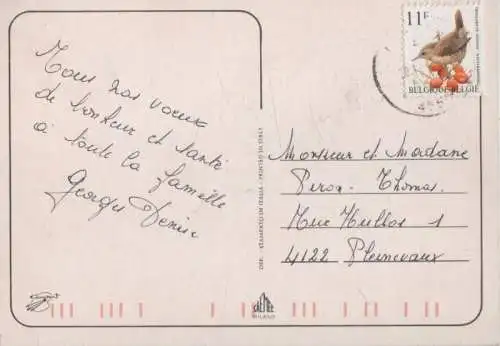 Tous nos voeux
de bonheur et santé
à toute la famille
Georges Denise
11F
BELGIQUE-BELGIË
Monsieur et Madame
Piron - Thomas
Rue Hullos 1
4122 Plainevaux
DEP. STAMPATO IN ITALIA - PRINTED IN ITALY
MILANO